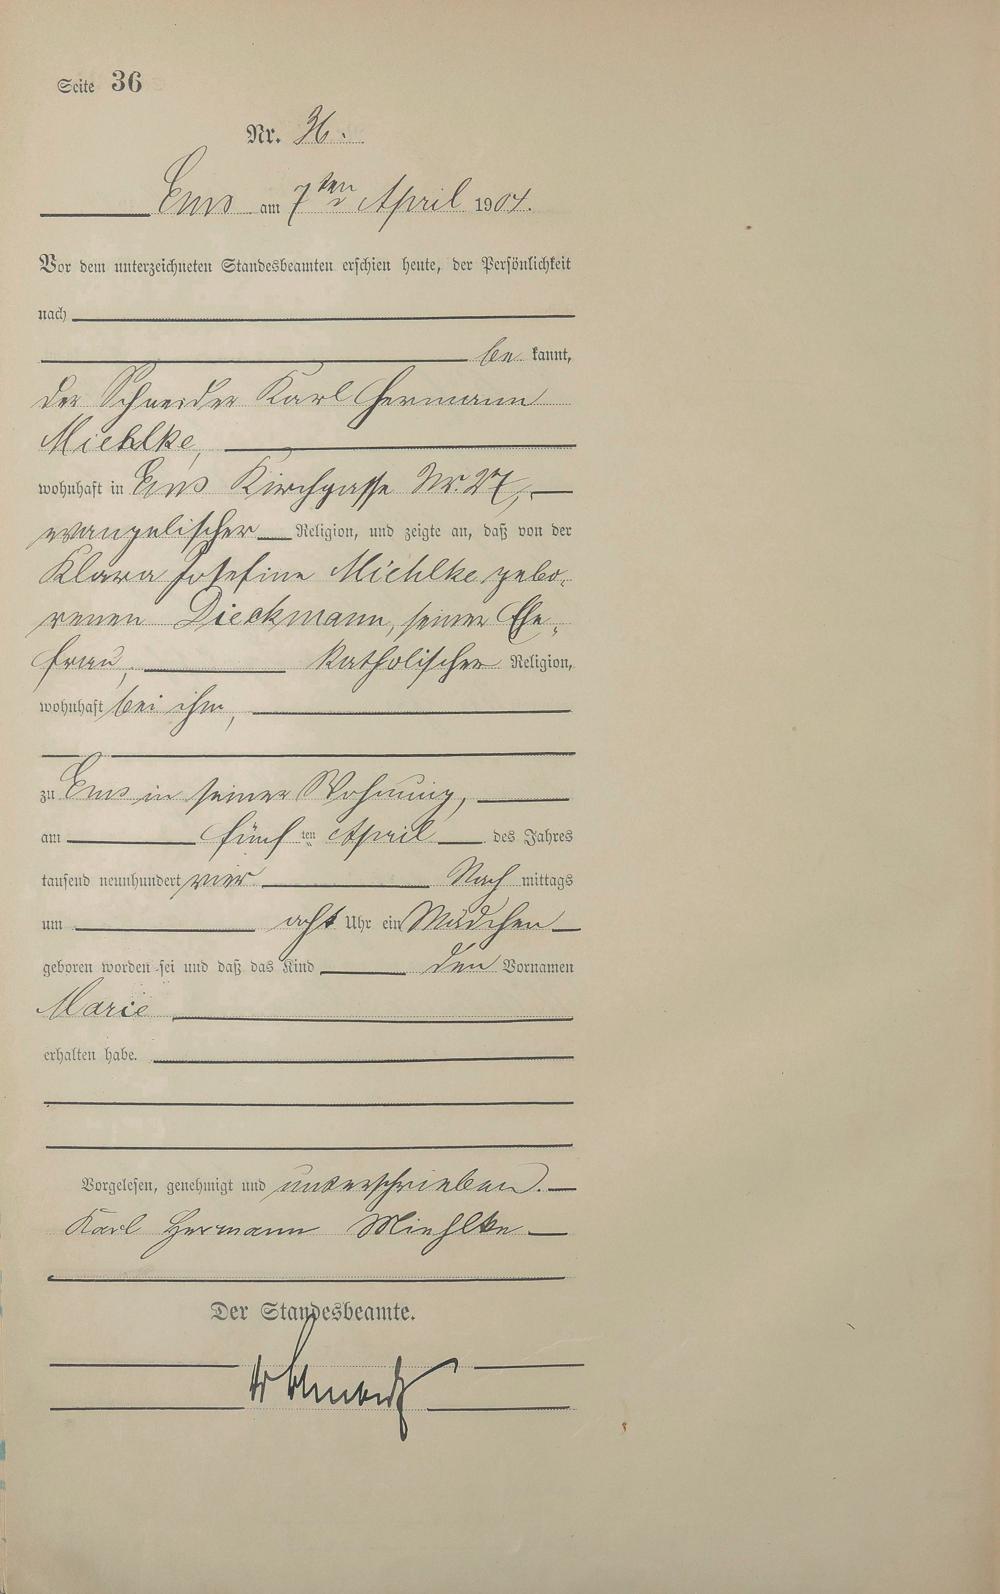 Seite 36
Nr. 36.
Ems am 7ten April 1904.
Vor dem unterzeichneten Standesbeamten erschien heute, der Persönlichkeit
nach
be kannt,
der Schneider Karl Hermann
Miehlke,
wohnhaft in Ems Kirchgasse Nr. 27,
evangelischer Religion, und zeigte an, daß von der
Klara Josefine Miehlke gebo-
renen Dieckmann, seiner Ehe-
frau, katholischer Religion,
wohnhaft bei ihm,
zu Ems in seiner Wohnung,
am fünf ten April des Jahres
tausend neunhundert vier Nach mittags
um acht Uhr ein Mädchen
geboren worden sei und daß das Kind den Vornamen
Marie
erhalten habe.
Vorgelesen, genehmigt und unterschrieben.
Karl Hermann Miehlke
Der Standesbeamte.